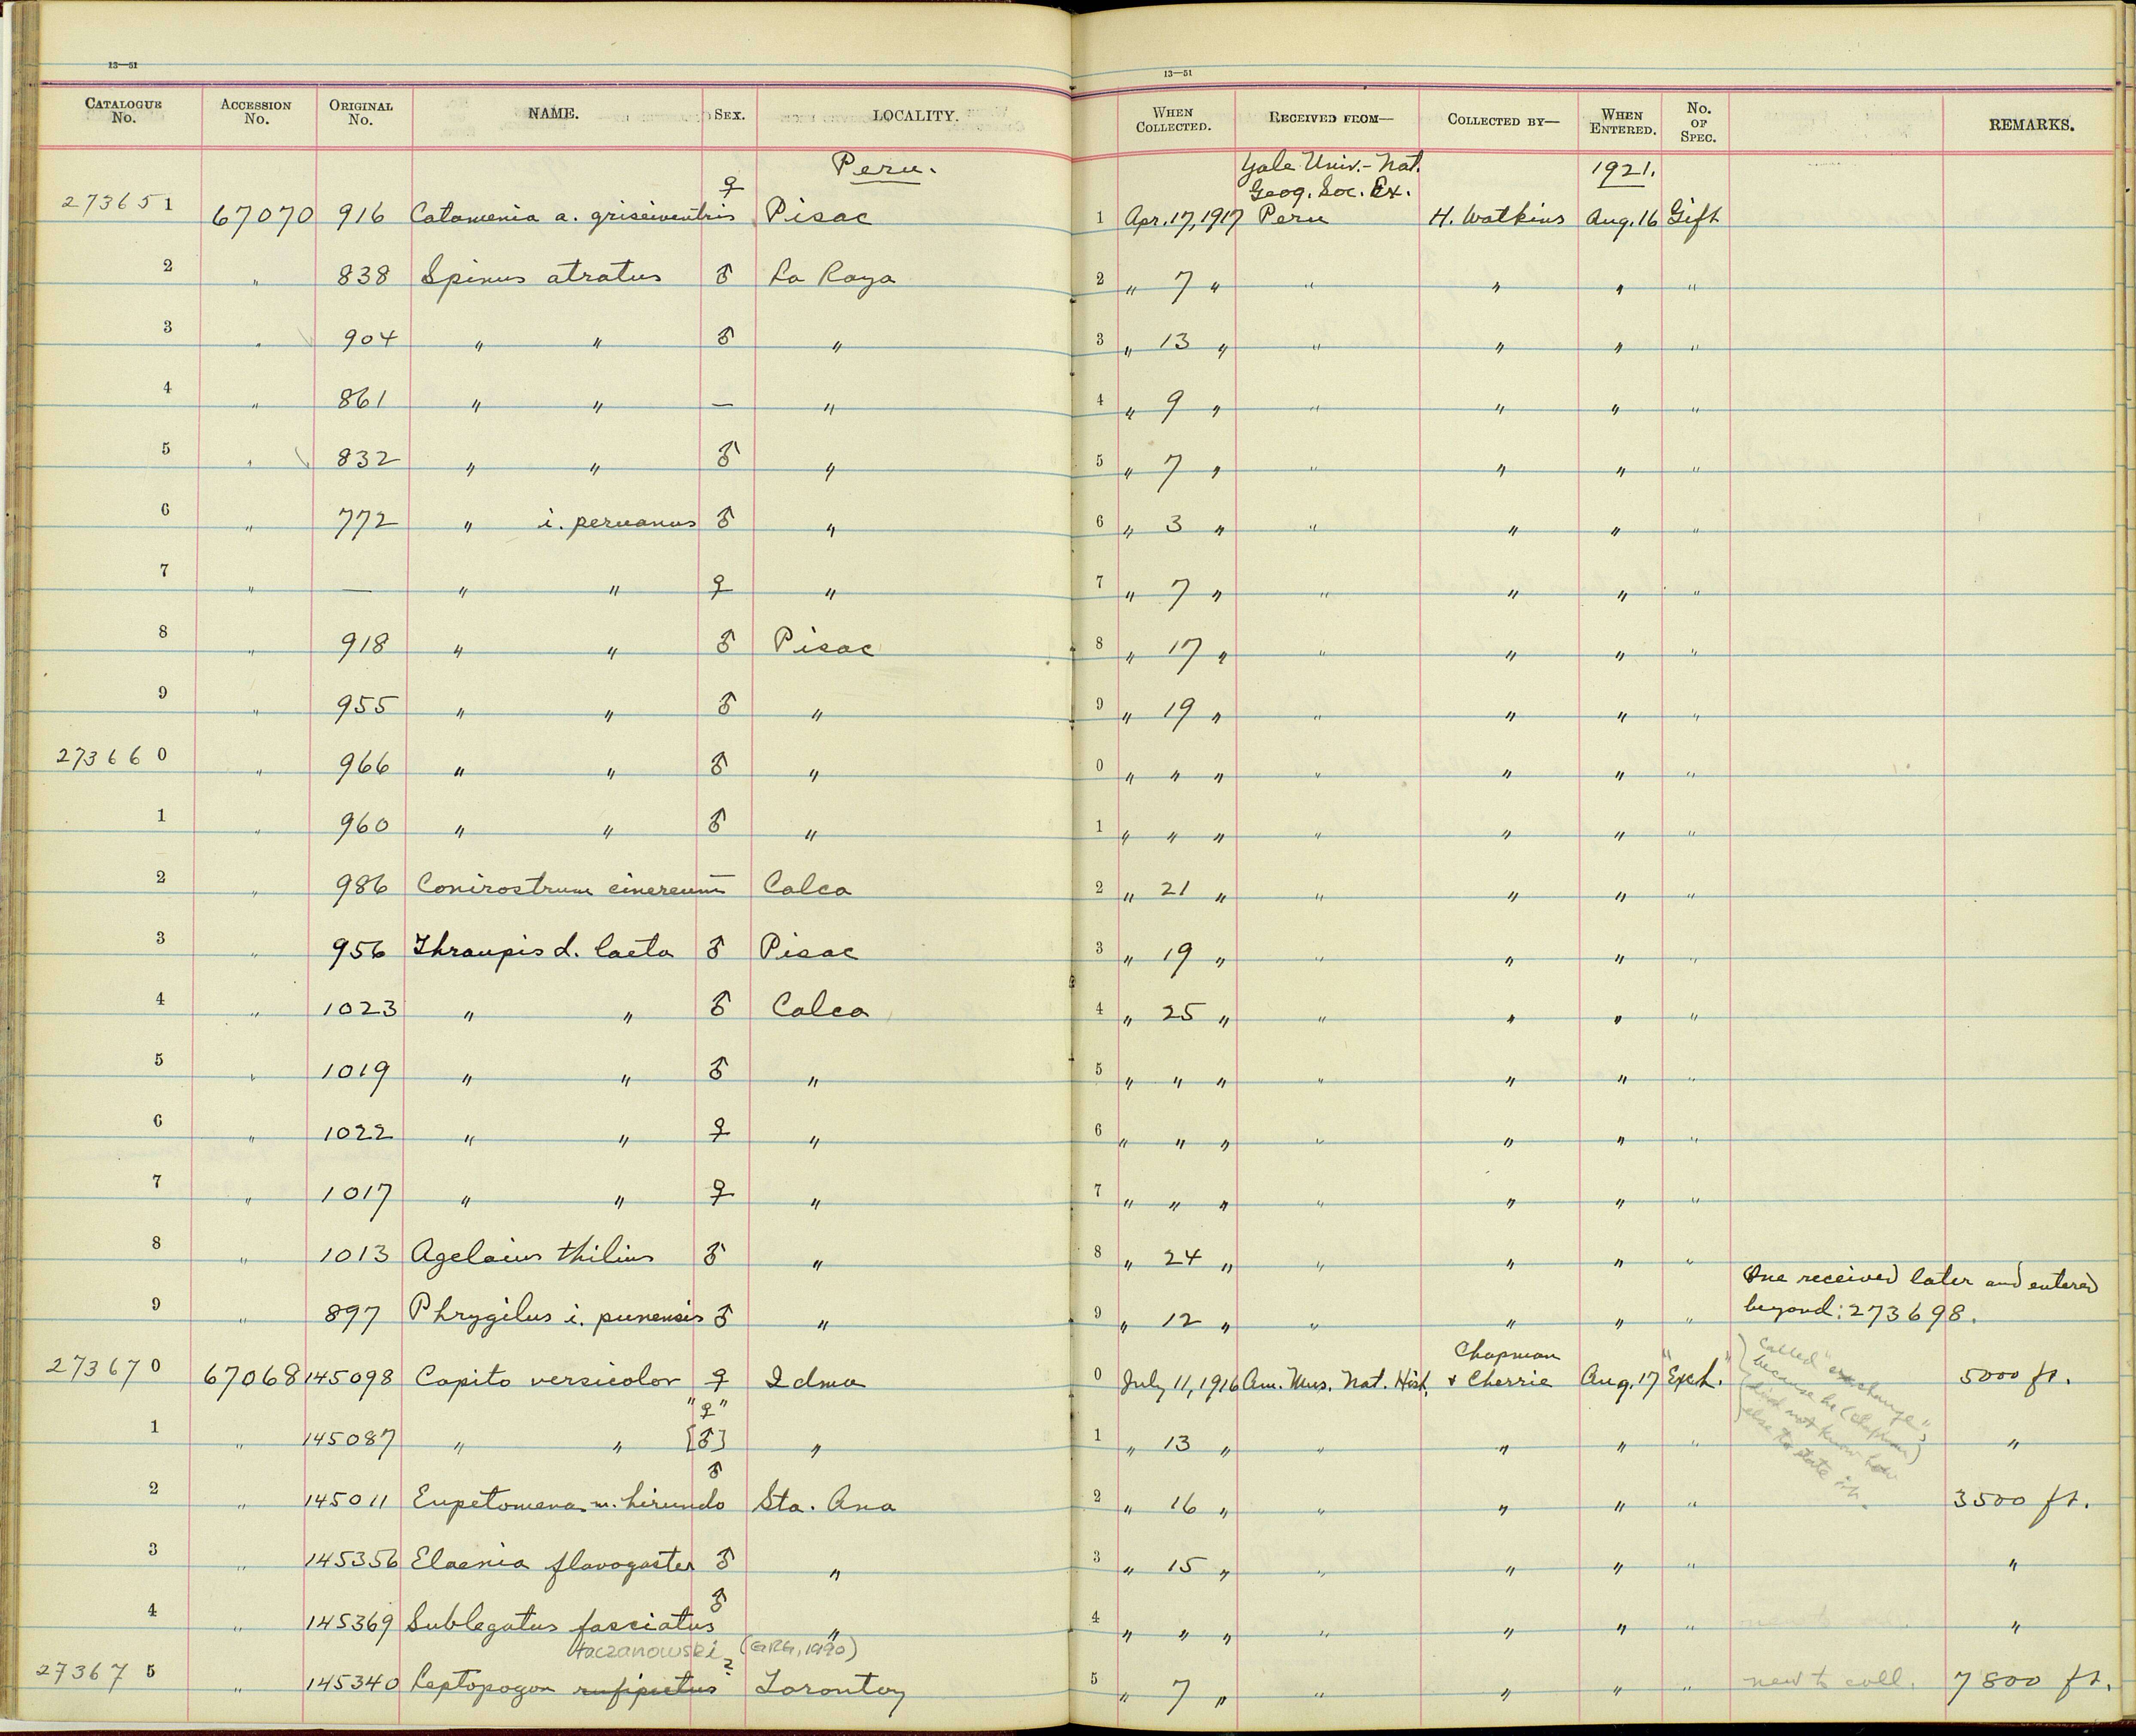 13—51
13—51
CATALOGUE No. ACCESSION No. ORIGINAL No. NAME. SEX. LOCALITY. WHEN COLLECTED. RECEIVED FROM— COLLECTED BY— WHEN ENTERED. No. OF SPEC. REMARKS.
Peru. Yale Univ.- Nat. Geog. Soc. Ex. 1921.
273651 67070 916 Catamenia a. griseiventris ♀ Pisac 1 Apr. 17, 1917 Peru H. Watkins Aug. 16 Gift
2 " 838 Spinus atratus ♂ La Raya 2 " 7 " " " " "
3 " 904 " " ♂ " 3 " 13 " " " " "
4 " 861 " " — " 4 " 9 " " " " "
5 " 832 " " ♂ " 5 " 7 " " " " "
6 " 772 " i. peruanus ♂ " 6 " 3 " " " " "
7 " — " " ♀ " 7 " 7 " " " " "
8 " 918 " " ♂ Pisac 8 " 17 " " " " "
9 " 955 " " ♂ " 9 " 19 " " " " "
273660 " 966 " " ♂ " 0 " " " " " " "
1 " 960 " " ♂ " 1 " " " " " " "
2 " 986 Conirostrum cinereum — Calca 2 " 21 " " " " "
3 " 956 Thraupis d. laeta ♂ Pisac 3 " 19 " " " " "
4 " 1023 " " ♂ Calca 4 " 25 " " " " "
5 " 1019 " " ♂ " 5 " " " " " " "
6 " 1022 " " ♀ " 6 " " " " " " "
7 " 1017 " " ♀ " 7 " " " " " " "
8 " 1013 Agelaius thilius ♂ " 8 " 24 " " " " "
One received later and entered
9 " 897 Phrygilus i. punensis ♂ " 9 " 12 " " " " " beyond: 273698.
273670 67068 145098 Capito versicolor ♀ Idma 0 July 11, 1916 Am. Mus. Nat. Hist. Chapman & Cherrie Aug. 17 "Exch." 5000 ft.
called "exchange",
because he (Chapman)
did not know how
else to state it.
1 " 145087 " " "♀" [♂] " 1 " 13 " " " " " "
2 " 145011 Eupetomena m. hirundo ♂ Sta. Ana 2 " 16 " " " " " 3500 ft.
3 " 145356 Elaenia flavogaster ♂ " 3 " 15 " " " " " "
4 " 145369 Sublegatus fasciatus ♂ " 4 " " " " " " " "
taczanowski (GRG, 1990)
273675 " 145340 Leptopogon rufipectus ? Torontoy 5 " 7 " " " " " new to coll. 7800 ft.